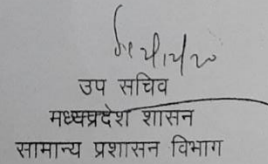 उप सचिव
मध्यप्रदेश शासन
सामान्य प्रशासन विभाग